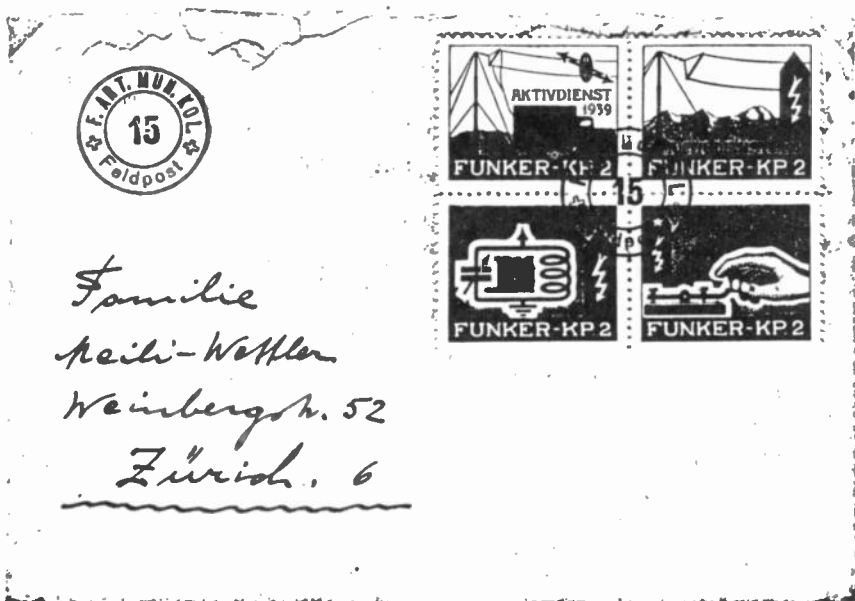 F. ART. MUN. KOL.
15
Feldpost
AKTIVDIENST
1939
FUNKER-KP. 2
FUNKER-KP. 2
15
FUNKER-KP. 2
FUNKER-KP. 2
Familie
Meili-Wettler
Weinbergstr. 52
Zürich. 6